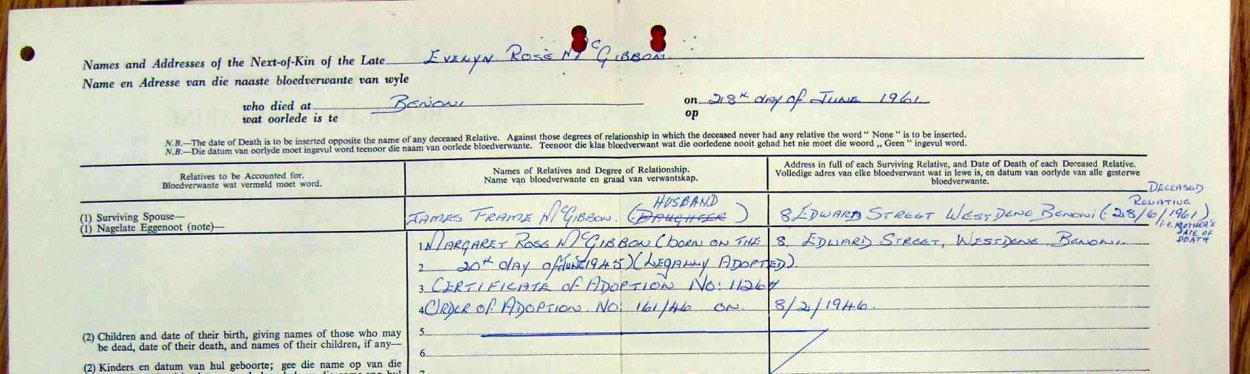 Names and Addresses of the Next-of-Kin of the Late EVELYN ROSE McGIBBON.
Name en Adresse van die naaste bloedverwante van wyle
who died at BENONI on 28th DAY OF JUNE 1961
wat oorlede is te op
N.B.—The date of Death is to be inserted opposite the name of any deceased Relative. Against those degrees of relationship in which the deceased never had any relative the word " None " is to be inserted.
N.B.—Die datum van oorlyde moet ingevul word teenoor die naam van oorlede bloedverwante. Teenoor die klas bloedverwant wat die oorledene nooit gehad het nie moet die woord „ Geen " ingevul word.
Relatives to be Accounted for.
Bloedverwante wat vermeld moet word.
Names of Relatives and Degree of Relationship.
Name van bloedverwante en graad van verwantskap.
Address in full of each Surviving Relative, and Date of Death of each Deceased Relative.
Volledige adres van elke bloedverwant wat in lewe is, en datum van oorlyde van alle gestorwe
bloedverwante.
(1) Surviving Spouse—
(1) Nagelate Eggenoot (note)—
HUSBAND
JAMES FRAME McGIBBON. (DAUGHTER)
DECEASED
RELATIVE
8 EDWARD STREET WESTDENE BENONI (28/6/1961)
i.e. MOTHER'S
DATE OF
DEATH
1. MARGARET ROSE McGIBBON (BORN ON THE 8, EDWARD STREET, WESTDENE BENONI.
2 20th DAY OF JUNE 1945) (LEGALLY ADOPTED)
3 CERTIFICATE OF ADOPTION NO: 11264
4 ORDER OF ADOPTION. NO: 161/46 ON 8/2/1946.
5
6
7
(2) Children and date of their birth, giving names of those who may
be dead, date of their death, and names of their children, if any—
(2) Kinders en datum van hul geboorte; gee die name op van die